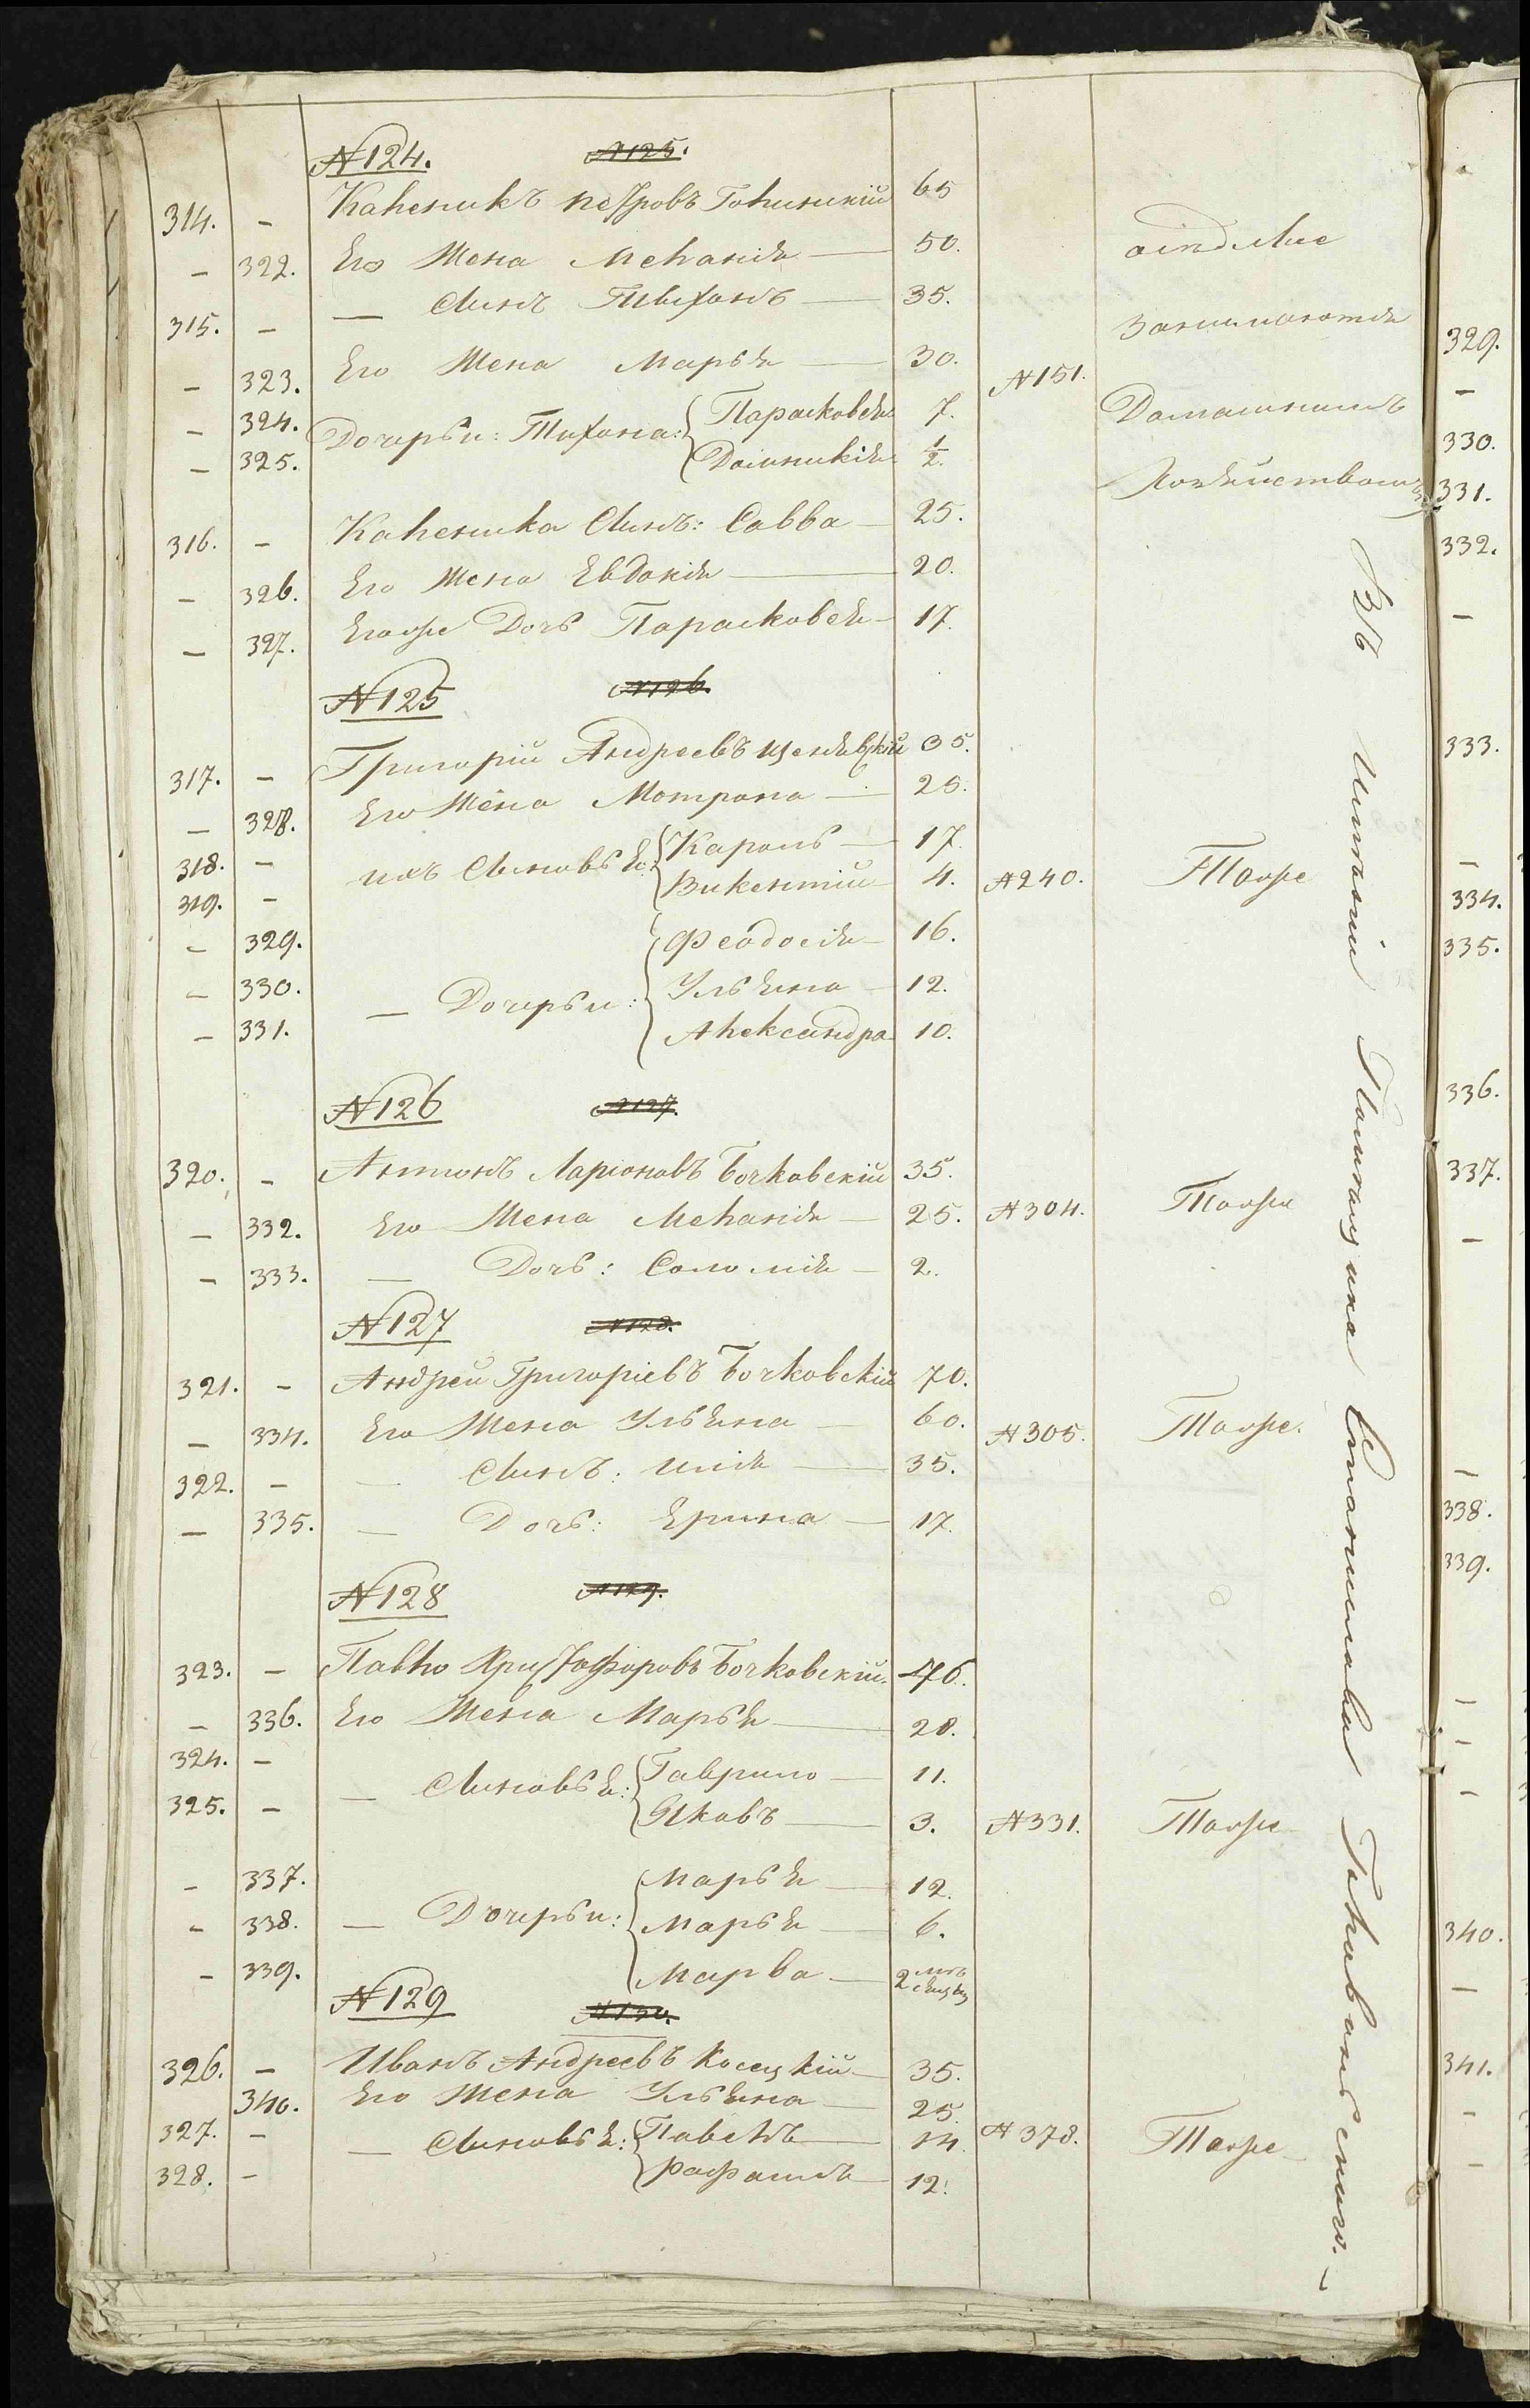 N 124. N 125.
314. – Каленикъ Петровъ Голинскій 65
– 322. Его Жена Меланія — 50.
315. – — Сынъ Тихонъ — 35.
– 323. Его Жена Марья — 30. N 151.
– 324. Дочерьи: Тихона: Парасковея 7.
– 325. Домникія 1/2.
Занимаются
Домашнимъ
Хозяйствомъ
316. – Каленика Сынъ: Савва — 25.
– 326. Его Жена Евдокія — 20.
– 327. Егоже Дочь Парасковея — 17.
N 125 N 126.
317. – Григорій Андреевъ 35.
– 328. Его Жена Мотрона — 25.
318. – ихъ Сыновья: Кароль — 17.
319. – Викентій — 4. N 240. Тоже
– 329. Феодосія — 16.
– 330. — Дочерьи: Ульяна — 12.
– 331. Александра 10.
N 126 N 127.
320. – Антонъ Ларіоновъ Бочковскій 35.
– 332. Его Жена Меланія — 25. N 304. Тоже
– 333. — Дочь: Соломія — 2.
N 127 N 128.
321. – Андрей Григоріевъ Бочковскій 70.
– 334. Его Жена Ульяна — 60. N 305. Тоже.
322. – — Сынъ: Илія — 35.
– 335. — Дочь: Ерина — 17.
N 128 N 129.
323. – Павло Христофоровъ Бочковскій. 46.
– 336. Его Жена Марья — 28.
324. – — Сыновья: Гаврило — 11.
325. – Яковъ — 3. N 331. Тоже
– 337. Марья — 12.
– 338. — Дочерьи: Марья — 6.
– 339. Марва — 2
N 129 N 130.
326. – Иванъ Андреевъ Косецкій — 35.
340. Его Жена Ульяна — 25.
327. – — Сыновья: Павелъ — 14. N 378. Тоже
328. – Рафаилъ — 12.
Въ Имѣніи Помѣщика Станислава
329.
–
330.
331.
332.
–
333.
–
334.
335.
336.
337.
–
–
338.
339.
–
–
–
340.
–
341.
–
–